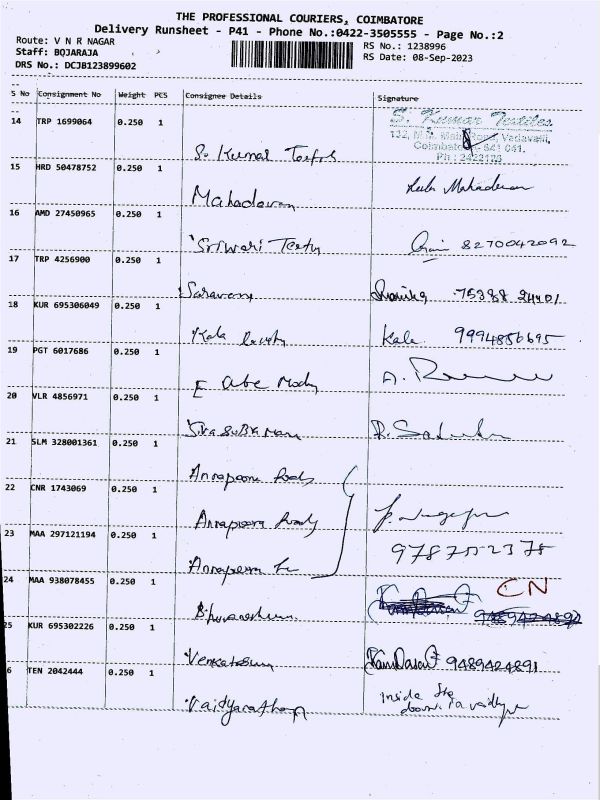 THE PROFESSIONAL COURIERS, COIMBATORE
Delivery Runsheet - P41 - Phone No.:0422-3505555 - Page No.:2
Route: V N R NAGAR
Staff: BQJARAJA
DRS No.: DCJB123899602
RS No.: 1238996
RS Date: 08-Sep-2023
S No Consignment No Weight PCS Consignee Details Signature
14 TRP 1699064 0.250 1
S. Kumar Textiles
132, Vadavalli,
Coimbatore - 641 041.
S. Kumar
15 HRD 50478752 0.250 1
Mahadevan Mahadevan
16 AMD 27450965 0.250 1
Sriwari 8270042092
17 TRP 4256900 0.250 1
Saravana 75388 24401
18 KUR 695306049 0.250 1
Kala Kala 9994856695
19 PGT 6017686 0.250 1
E Abe Mody A.
20 VLR 4856971 0.250 1
Siva Subramani
21 SLM 328001361 0.250 1
Annapoorna foods
22 CNR 1743069 0.250 1
Annapoorna foods
23 MAA 297121194 0.250 1
9787522375
Annapoorna
24 MAA 938078455 0.250 1
CN
Bhuvaneshwari
25 KUR 695302226 0.250 1
Venkatesan 9489424891
6 TEN 2042444 0.250 1
Vaidyanathan inside the
door